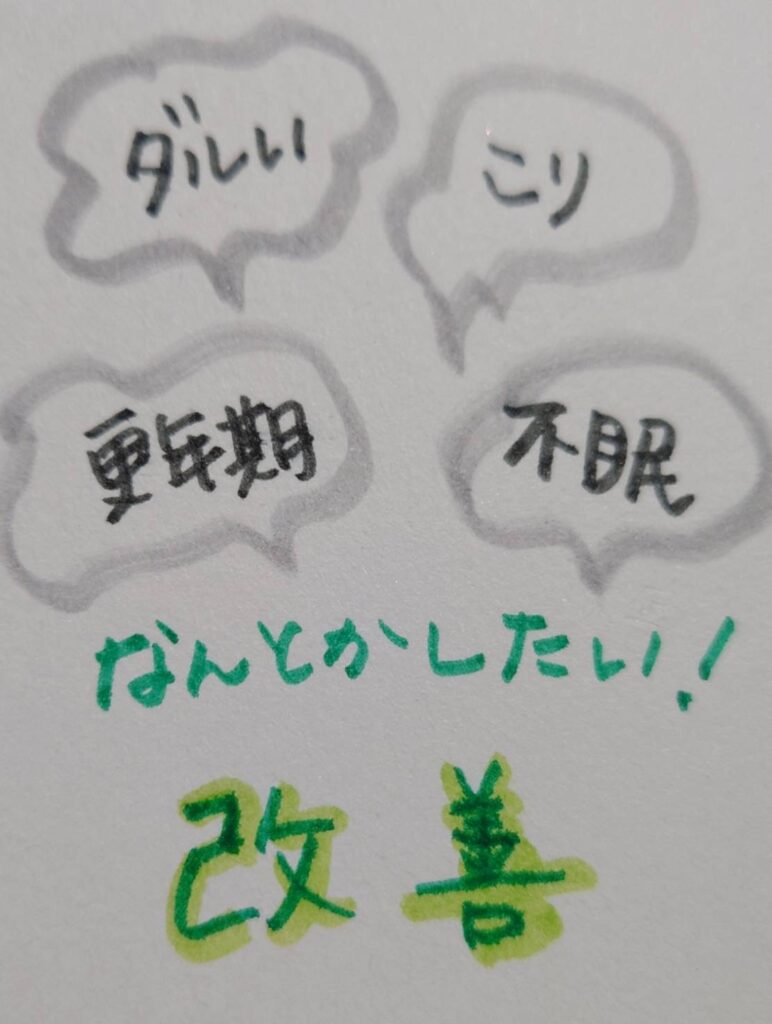 ダルい
こり
更年期
不眠
なんとかしたい!
改善